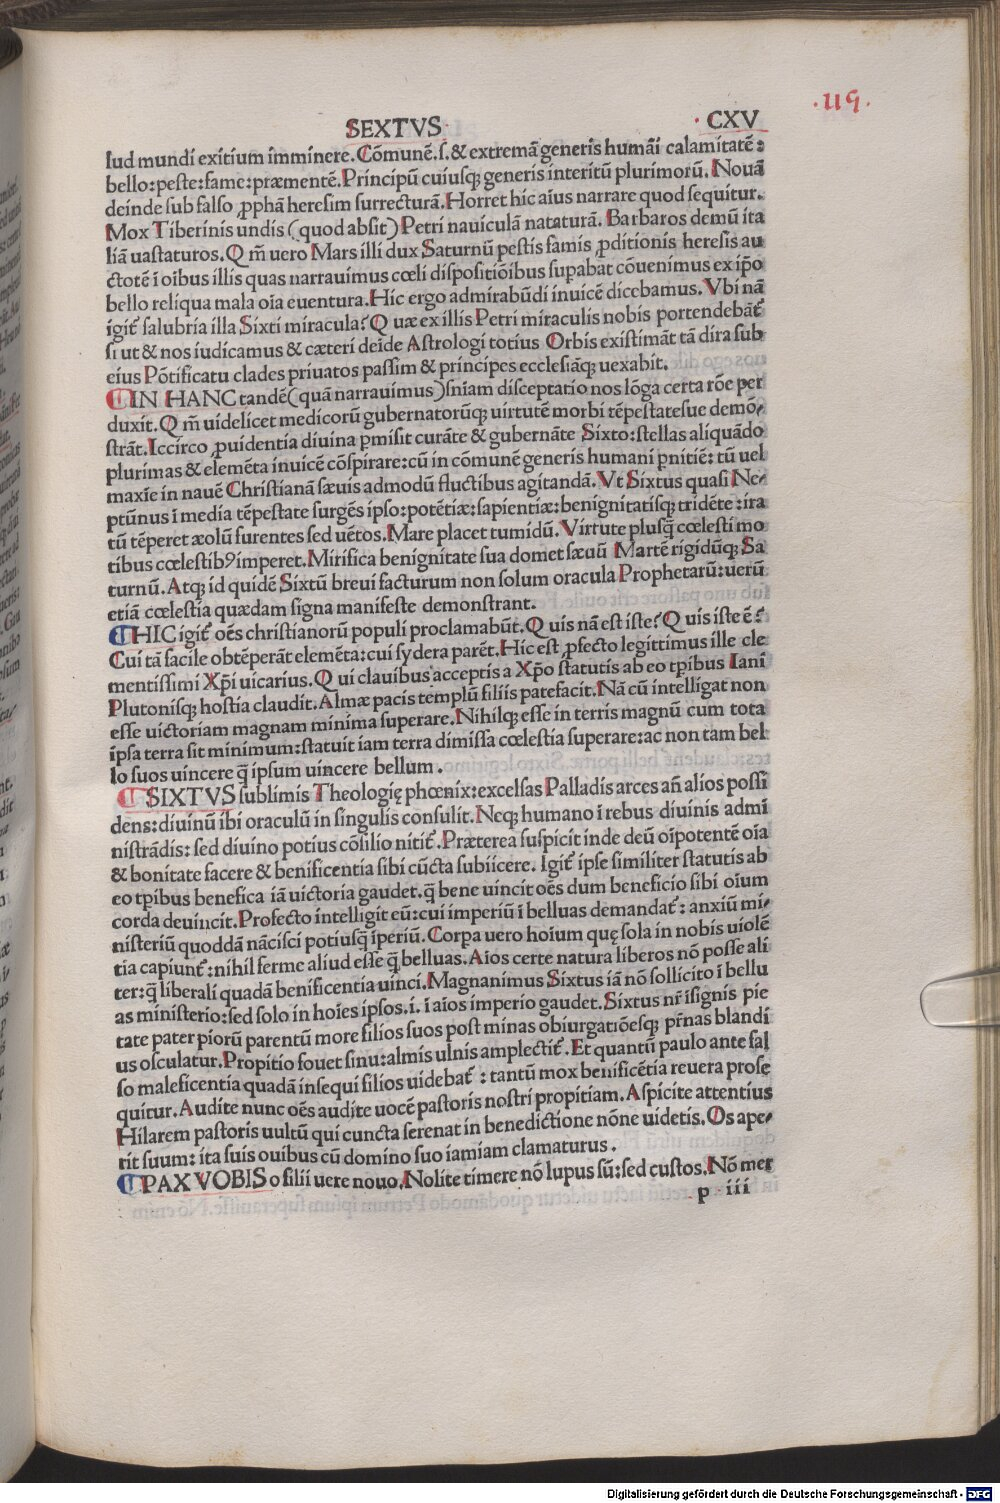 ·119·
SEXTVS
·CXV
lud mundi exitium imminere. Cōmunē.ſ.& extremā generis humāi calamitatē:
bello:peſte:fame:præmentē.Principū cuiuſq; generis interitū plurimorū. Nouā
deinde ſub falſo ꝓphā hereſim ſurrecturā. Horret hic aīus narrare quod ſequitur.
Mox Tiberinis undis (quod abſit) Petri nauiculā nataturā. Barbaros demū ita
liā uaſtaturos. Q m̄ uero Mars illi dux Saturnū peſtis famis ꝓditionis hereſis au
ctotē ī oībus illis quas narrauimus cœli diſpoſitiōibus ſupabat cōuenimus ex ip̄o
bello reliqua mala oīa euentura. Hic ergo admirabūdi inuicē dicebamus. Vbi nā
igit̄ ſalubria illa Sixti miracula? Q uæ ex illis Petri miraculis nobis portendebāt̄
ſi ut & nos iudicamus & cæteri deīde Aſtrologi totius Orbis exiſtimāt tā dira ſub
eius Pōtificatu clades priuatos paſſim & principes eccleſiāq; uexabit.
IN HANC tandē(quā narrauimus)ſniam diſceptatio nos lōga certa rōe per
duxit. Q m̄ uidelicet medicorū gubernatorūq; uirtutē morbi tēpeſtateſue demō-
ſtrāt. Iccirco ꝓuidentia diuina p̲miſit curāte & gubernāte Sixto: ſtellas aliquādo
plurimas & elemēta inuicē cōſpirare: cū in cōmunē generis humani p̲nitiē: tū uel
maxīe in nauē Chriſtianā ſæuis admodū fluctibus agitandā. Vt Sixtus quaſi Ne-
ptūnus ī media tēpeſtate ſurgēs ipſo: potētiæ: ſapientiæ: benignitatiſq; tridēte : ira
tū tēperet æolū furentes ſed uētos. Mare placet tumidū. Virtute pluſq̄ cœleſti mo
tibus cœleſtibꝰ imperet. Mirifica benignitate ſua domet ſæuū Martē rigidūq; Sa
turnū. Atq; id quidē Sixtū breui facturum non ſolum oracula Prophetarū: uerū
etiā cœleſtia quædam ſigna manifeſte demonſtrant.
HIC igit̄ oēs chriſtianorū populi proclamabūt. Q uis nā eſt iſte? Q uis iſte ē?
Cui tā facile obtēperāt elemēta: cui ſydera parēt. Hic eſt ꝓfecto legittimus ille cle
mentiſſimi Xp̄i uicarius. Q ui clauibus acceptis a Xp̄o ſtatutis ab eo tp̄ibus Iani
Plutoniſq; hoſtia claudit. Almæ pacis templū filiis patefacit. Nā cū intelligat non
eſſe uictoriam magnam minima ſuperare. Nihilq; eſſe in terris magnū cum tota
ipſa terra ſit minimum: ſtatuit iam terra dimiſſa cœleſtia ſuperare: ac non tam bel
lo ſuos uincere q̄ ipſum uincere bellum.
SIXTVS ſublimis Theologię phœnix: excelſas Palladis arces an̄ alios poſſi
dens: diuinū ibi oraculū in ſingulis conſulit. Neq; humano ī rebus diuinis admi
niſtrādis: ſed diuino potius cōſilio nitit̄. Præterea ſuſpicit inde deū oīpotentē oīa
& bonitate facere & benificentia ſibi cūcta ſubiicere. Igit̄ ipſe ſimiliter ſtatutis ab
eo tp̄ibus benefica iā uictoria gaudet. q̄ bene uincit oēs dum beneficio ſibi oium
corda deuincit. Profecto intelligit eū: cui imperiū ī belluas demandat̄ : anxiū mi-
niſteriū quoddā nāciſci potiuſq̄ īperiū. Corpa uero hoium quę ſola in nobis uiolē
tia capiunt̄ : nihil ferme aliud eſſe q̄ belluas. Aīos certe natura liberos nō poſſe ali
ter: q̄ liberali quadā benificentia uinci. Magnanimus Sixtus iā nō ſollicito ī bellu
as miniſterio: ſed ſolo in hoīes ipſos.i. ī aīos imperio gaudet. Sixtus nr̄ īſignis pie
tate pater piorū parentū more filios ſuos poſt minas obiurgatiōeſq; pr̄nas blandi
us oſculatur. Propitio fouet ſinu: almis ulnis amplectit̄. Et quantū paulo ante fal
ſo maleficentia quadā inſequi filios uidebat̄ : tantū mox benificētia reuera proſe
quitur. Audite nunc oēs audite uocē paſtoris noſtri propitiam. Aſpicite attentius
Hilarem paſtoris uultū qui cuncta ſerenat in benedictione nōne uidetis. Os ape-
rit ſuum: ita ſuis ouibus cū domino ſuo iamiam clamaturus.
PAX VOBIS o filii uere nouo. Nolite timere nō lupus ſū: ſed cuſtos. Nō mer
p iii
Digitalisierung gefördert durch die Deutsche Forschungsgemeinschaft - DFG